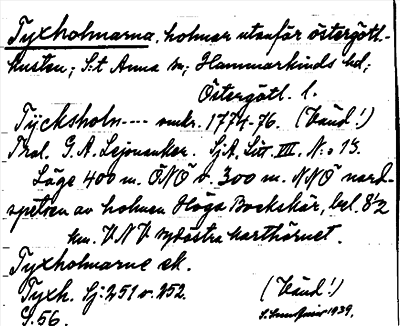 Tyxholmarna, holmar utanför östergötl.-
kusten; S:t Anna sn; Hammarkinds hd;
Östergötl. l.
Tÿcksholm--- omkr. 1774-76. (Vänd!)
Thal. G. A. Lejonanker. Sj.A. Litt VII. No 13.
Läge 400 m. ÖNÖ o. 300 m. NNÖ nord-
spetsen av holmen Höga Bockskär, bel. 8½
km. VNV sydöstra karthörnet.
Tyxholmarne ek.
Tyxh. Sj: 251 o. 252. (Vänd!)
G. 56. 1939.